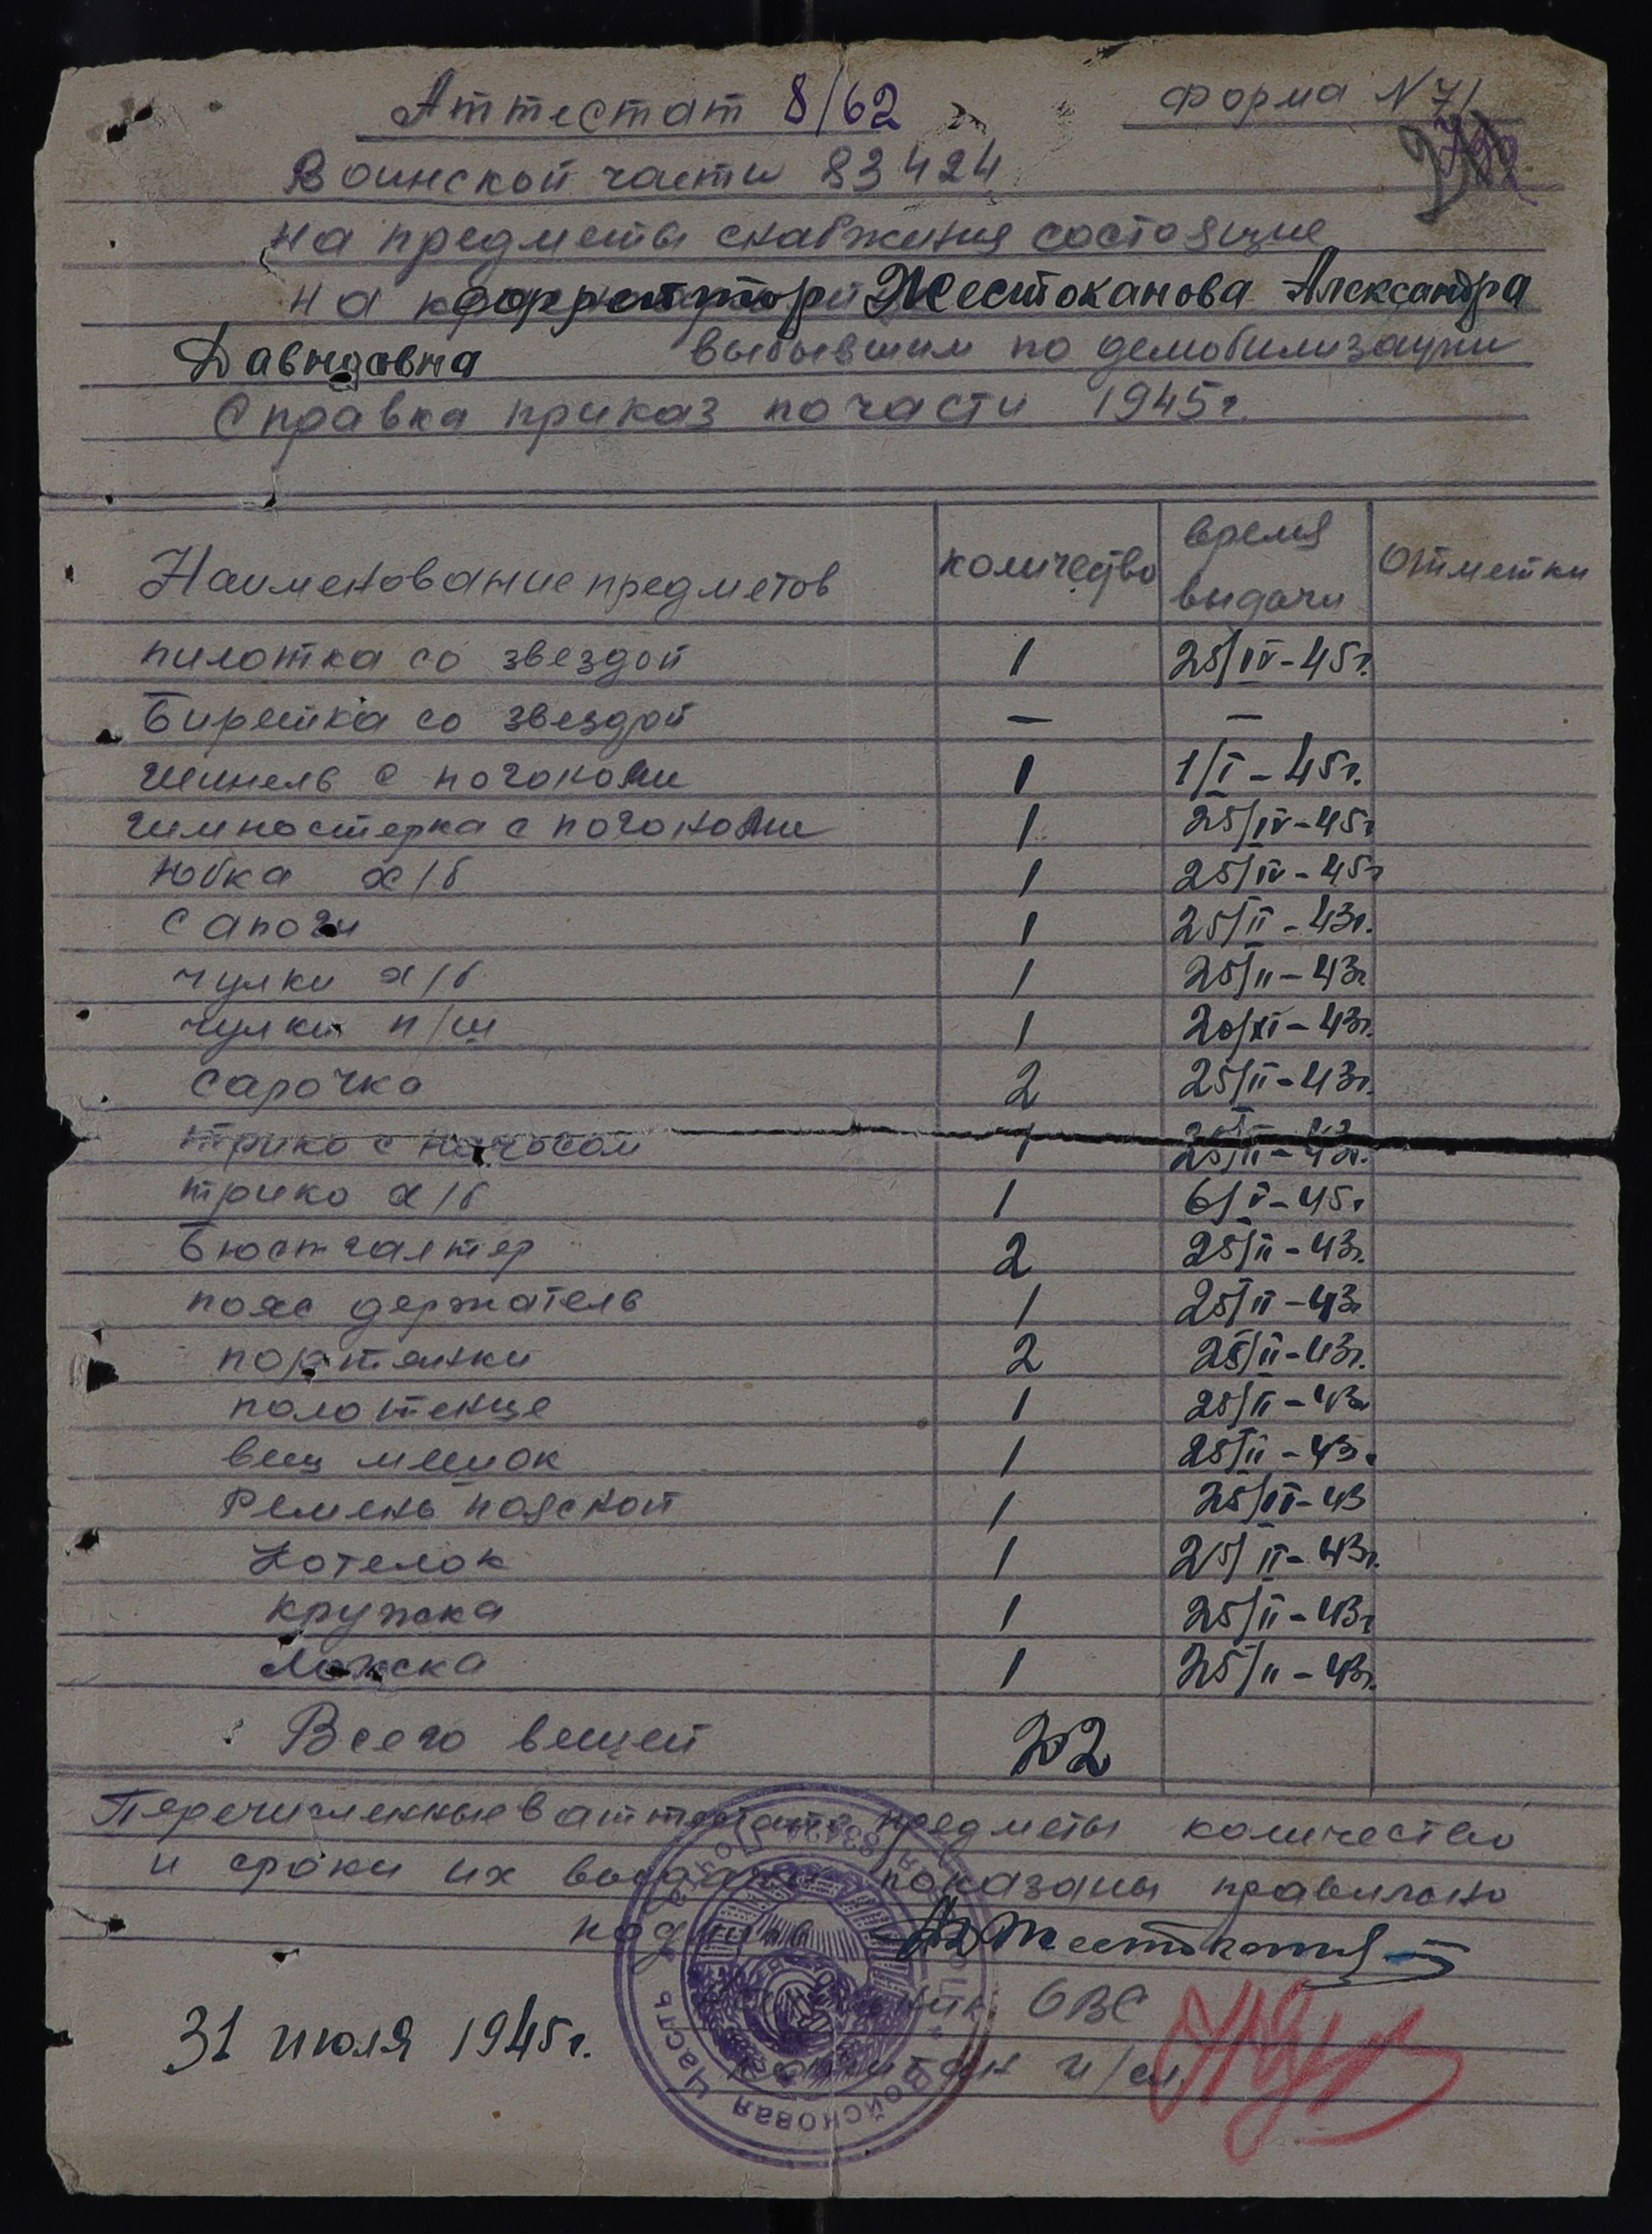 Аттестат 8/62 форма N 71
Воинской части 83424
на предметы снабжения состоящие
на ефрейтор Жестоканова Александра
Давидовна выбывшим по демобилизации
Справка приказ по части 1945г.
Наименование предметов количество время выдачи Отметки
пилотка со звездой 1 25/IV-45г.
Биретка со звездой — —
шинель с погонами 1 1/I-45г.
гимностерка с погонами 1 25/IV-45г
юбка х/б 1 25/IV-45г
сапоги 1 25/II-43г.
чулки х/б 1 25/II-43г
чулки п/ш 1 20/XI-43г.
сарочка 2 25/II-43г.
трико с начосом 1 25/II-43г.
трико х/б 1 6/V-45г
Бюстгалтер 2 25/II-43г.
пояс держатель 1 25/II-43г
портянки 2 25/II-43г.
полотенце 1 25/II-43г
вещ мешок 1 25/II-43г.
Ремень пояской 1 25/II-43
Котелок 1 25/II-43г.
кружка 1 25/II-43г
Ложка 1 25/II-43г.
Всего вещей 22
Перечисленные в аттестате предметы количество
и сроки их выдачи показаны правильно
31 июля 1945г.
ОВС
капитан и/сл.
Войсковая часть 83424